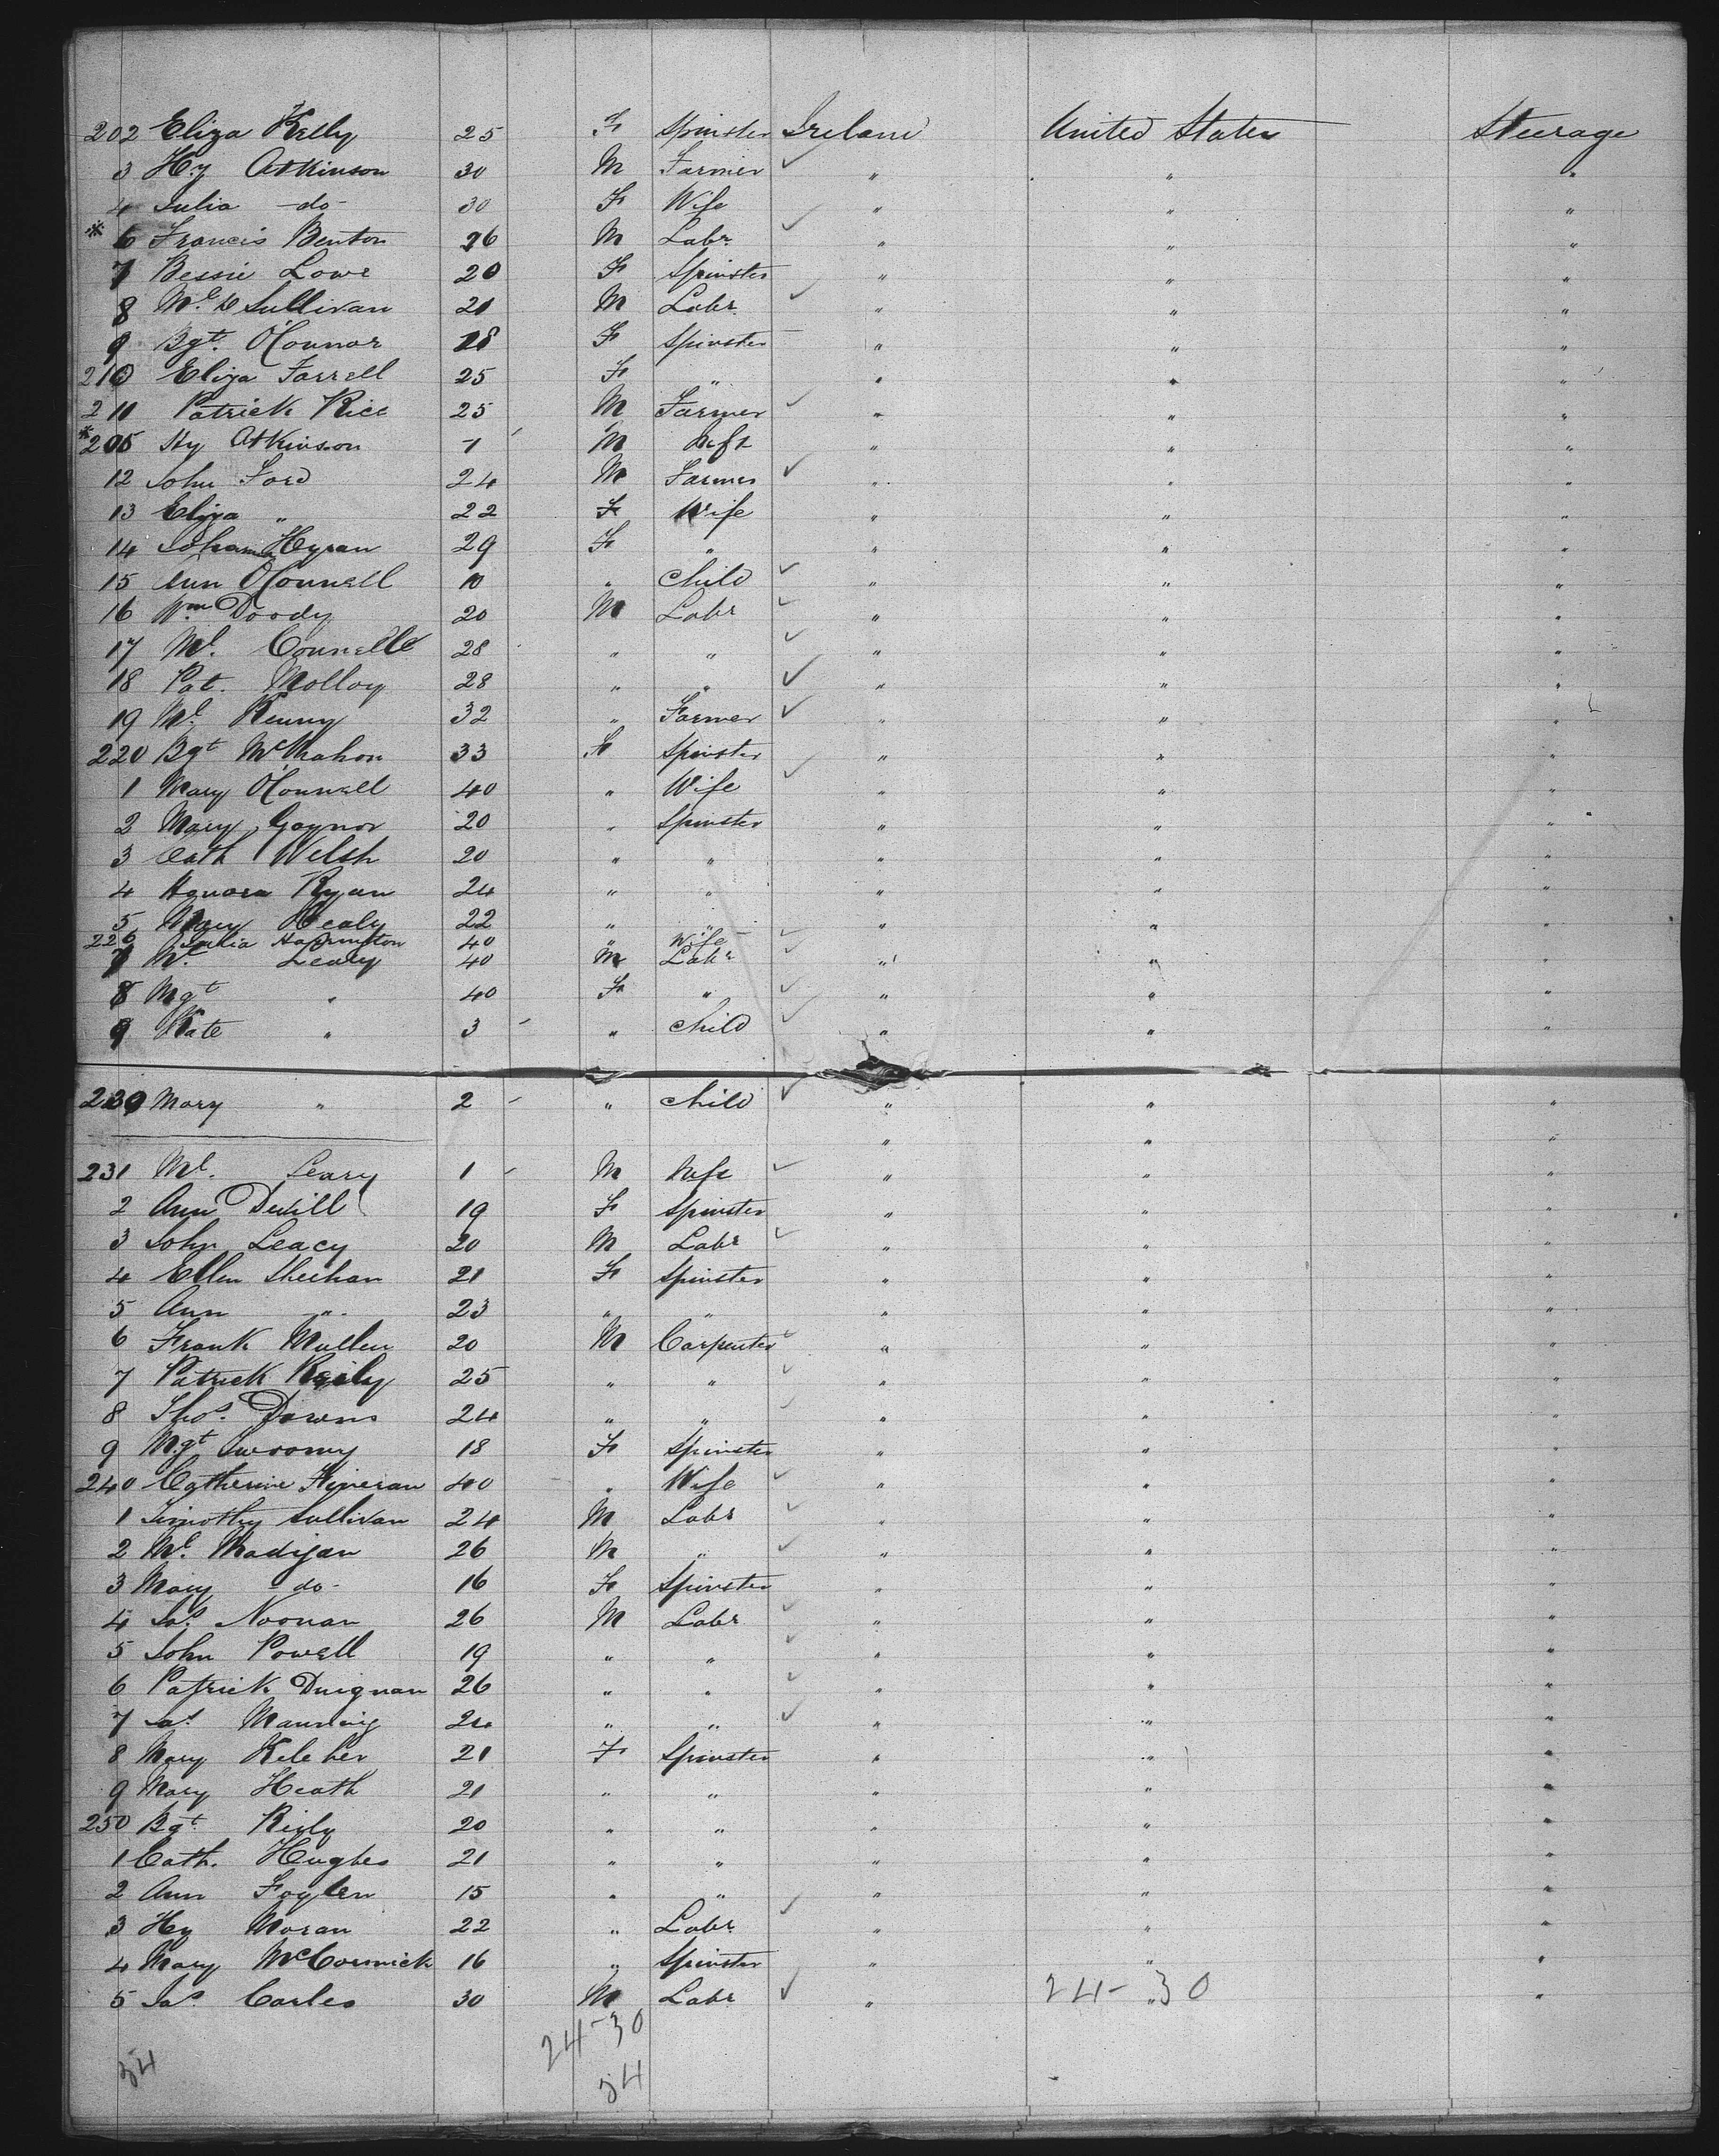 202 Eliza Kelly 25 F Spinster Ireland United States Steerage
3 Hy Atkinson 30 M Farmer " " "
4 Julia -do- 30 F Wife " " "
* 6 Francis Benton 26 M Labr " " "
7 Bessie Lowe 20 F Spinster " " "
8 Ml Sullivan 21 M Labr " " "
9 Bgt. O'Connor 18 F Spinster " " "
210 Eliza Farrell 25 F " " " "
211 Patrick Rice 25 M Farmer " " "
* 205 Hy Atkinson 1 M Inft " " "
12 John Ford 24 M Farmer " " "
13 Eliza " 22 F Wife " " "
14 Johanna Hyran 29 F " " " "
15 Ann O'Connell 10 " Child " " "
16 Wm Doody 20 M Labr " " "
17 Ml. Connell 28 " " " " "
18 Pat. Molloy 28 " " " " "
19 Ml. Kenny 32 " Farmer " " "
220 Bgt McMahon 33 F Spinster " " "
1 Mary O'Connell 40 " Wife " " "
2 Mary Gaynor 20 " Spinster " " "
3 Cath Welsh 20 " " " " "
4 Honora Ryan 24 " " " " "
5 Mary Healy 22 " " " " "
226 Julia Harrington 40 " Wife
7 Ml Leary 40 M Labr " " "
8 Mgt " 40 F " " " "
9 Kate " 3 " Child " " "
230 Mary " 2 " Child " " "
" " "
231 Ml. Leary 1 M Inft " " "
2 Ann Devill 19 F Spinster " " "
3 John Leacy 20 M Labr " " "
4 Ellen Sheehan 21 F Spinster " " "
5 Ann " 23 " " " " "
6 Frank Mullen 20 M Carpenter " " "
7 Patrick Reily 25 " " " " "
8 Thos. Downs 24 " " " " "
9 Mgt Sweeny 18 F Spinster " " "
240 Catherine Fineran 40 " Wife " " "
1 Timothy Sullivan 24 M Labr " " "
2 Ml. Madigan 26 M " " " "
3 Mary -do- 16 F Spinster " " "
4 Jas. Noonan 26 M Labr " " "
5 John Powell 19 " " " " "
6 Patrick Duignan 26 " " " " "
7 Jas. Manning 24 " " " " "
8 Mary Keleher 21 F Spinster " " "
9 Mary Heath 21 " " " " "
250 Bgt. Reily 20 " " " " "
1 Cath. Hughes 21 " " " " "
2 Ann Foylen 15 " " " " "
3 Hy Moran 22 " Labr " " "
4 Mary McCormick 16 " Spinster " " "
5 Jas. Carles 30 M Labr " " "
24-30
24-30
54
54